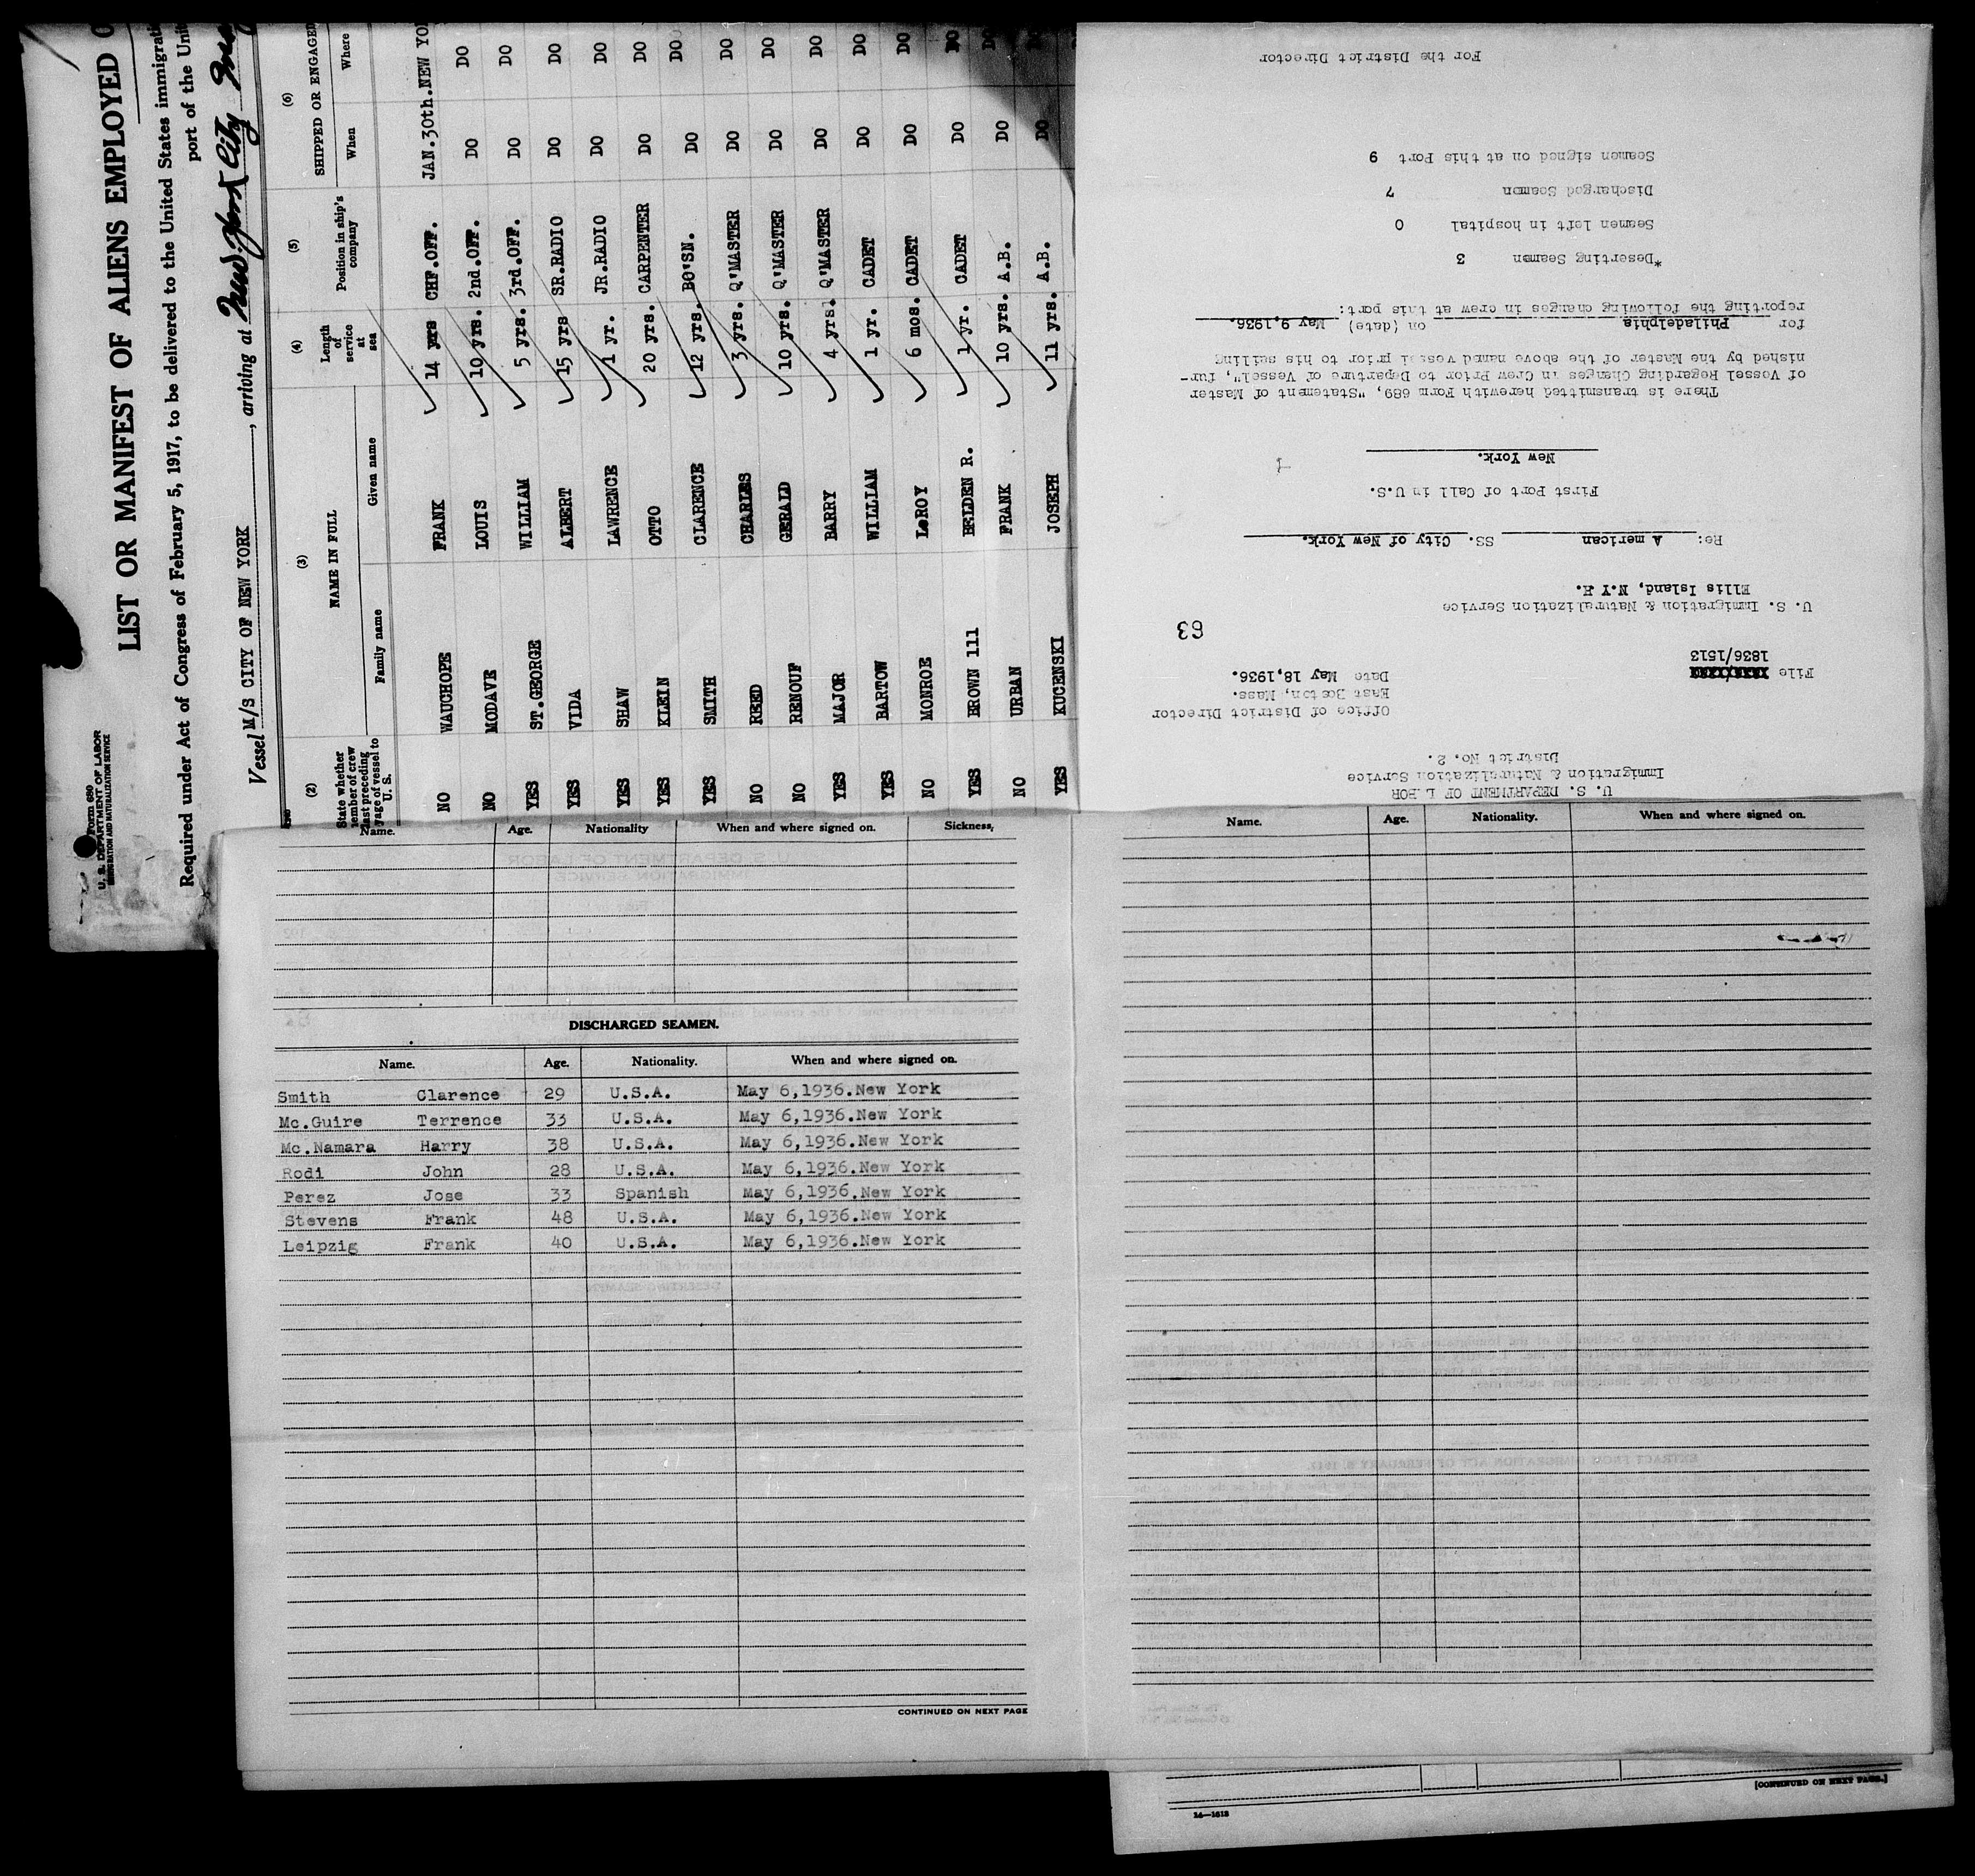 Form 680
U. S. DEPARTMENT OF LABOR
IMMIGRATION AND NATURALIZATION SERVICE
LIST OR MANIFEST OF ALIENS EMPLOYED
Required under Act of Congress of February 5, 1917, to be delivered to the United States
port of the
Vessel M/S CITY OF NEW YORK, arriving at New York City
(2) (3) (4) (5) (6)
State whether member of crew last preceding voyage of vessel to U. S.
NAME IN FULL
Family name Given name
Length of service at sea
Position in ship's company
SHIPPED OR ENGAGED
When Where
NO WAUCHOPE FRANK 14 yrs CHF.OFF. JAN.30th. NEW
NO MODAVE LOUIS 10 yrs. 2nd.OFF. DO DO
YES ST.GEORGE WILLIAM 5 yrs. 3rd.OFF. DO DO
YES VIDA ALBERT 15 yrs SR.RADIO DO DO
YES SHAW LAWRENCE 1 yr. JR.RADIO DO DO
YES KLEIN OTTO 20 yrs. CARPENTER DO DO
YES SMITH CLARENCE 12 yrs. BO'SN. DO DO
NO REED CHARLES 3 yrs. Q'MASTER DO DO
NO RENOUF GERALD 10 yrs. Q'MASTER DO DO
YES MAJOR BARRY 4 yrs. Q'MASTER DO DO
YES BARTOW WILLIAM 1 yr. CADET DO DO
NO MONROE LeROY 6 mos. CADET DO DO
YES BROWN 111 BELDEN R. 1 yr. CADET DO DO
NO URBAN FRANK 10 yrs. A.B. DO DO
YES KUCENSKI JOSEPH 11 yrs. A.B. DO DO
U. S. DEPARTMENT OF LABOR
Immigration & Naturalization Service
District No. 2.
Office of District Director
East Boston, Mass.
File 1836/1513
Date May 18,1936.
63
U. S. Immigration & Naturalization Service
Ellis Island, N.Y.H.
Re: A merican SS. City of New York.
First Port of Call in U.S.
New York.
There is transmitted herewith Form 689, "Statement of Master
of Vessel Regarding Changes in Crew Prior to Departure of Vessel", fur-
nished by the Master of the above named vessel prior to his sailing
for Philadelphia on (date) May 9,1936.
reporting the following changes in crew at this port:
*Deserting Seamen 3
Seamen left in hospital 0
Discharged Seamen 7
Seamen signed on at this Port 9
For the District Director
Name. Age. Nationality When and where signed on. Sickness.
DISCHARGED SEAMEN.
Name. Age. Nationality. When and where signed on.
Smith Clarence 29 U.S.A. May 6,1936.New York
Mc.Guire Terrence 33 U.S.A. May 6,1936.New York
Mc.Namara Harry 38 U.S.A. May 6,1936.New York
Rodi John 28 U.S.A. May 6,1936.New York
Perez Jose 33 Spanish May 6,1936.New York
Stevens Frank 48 U.S.A. May 6,1936.New York
Leipzig Frank 40 U.S.A. May 6,1936.New York
CONTINUED ON NEXT PAGE
Name. Age. Nationality. When and where signed on.
[CONTINUED ON NEXT PAGE.]
14—1613